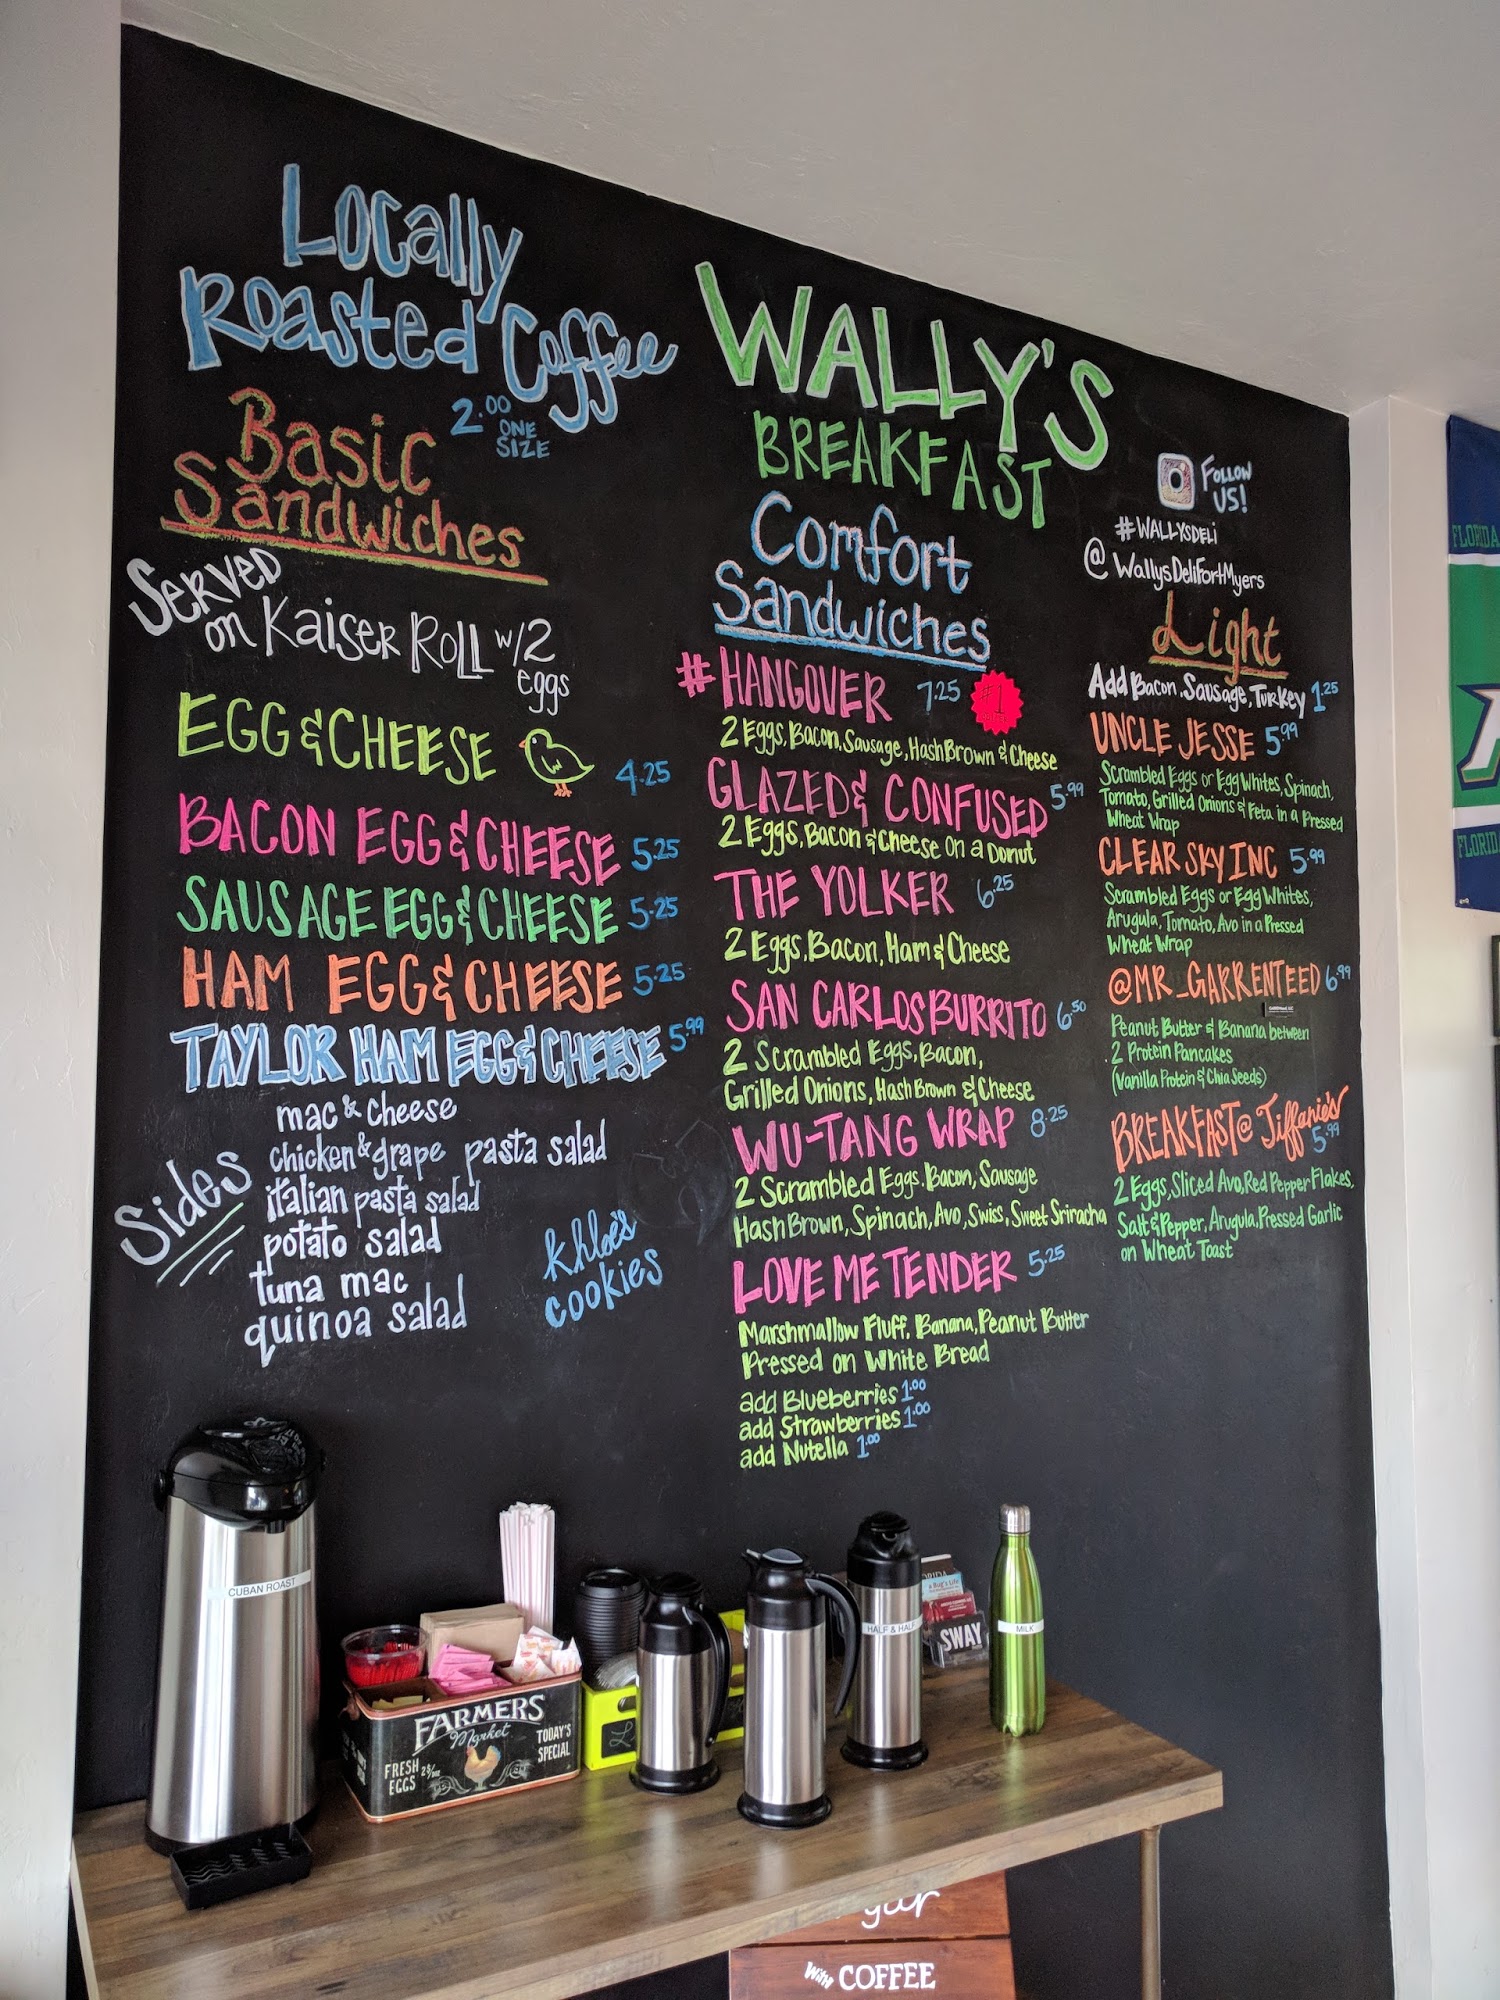 Locally
Roasted Coffee
2.00
ONE
SIZE
Basic
Sandwiches
Served
on Kaiser Roll w/2
eggs
EGG & CHEESE 4.25
BACON EGG & CHEESE 5.25
SAUSAGE EGG & CHEESE 5.25
HAM EGG & CHEESE 5.25
TAYLOR HAM EGG & CHEESE 5.99
Sides
mac & cheese
chicken & grape pasta salad
italian pasta salad
potato salad
tuna mac
quinoa salad
khloe's
cookies
WALLY'S
BREAKFAST
Comfort
Sandwiches
#HANGOVER 7.25
#1
2 Eggs, Bacon, Sausage, Hash Brown & Cheese
GLAZED & CONFUSED 5.99
2 Eggs, Bacon & Cheese on a Donut
THE YOLKER 6.25
2 Eggs, Bacon, Ham & Cheese
SAN CARLOS BURRITO 6.50
2 Scrambled Eggs, Bacon,
Grilled Onions, Hash Brown & Cheese
WU-TANG WRAP 8.25
2 Scrambled Eggs, Bacon, Sausage
Hash Brown, Spinach, Avo, Swiss, Sweet Sriracha
LOVE ME TENDER 5.25
Marshmallow Fluff, Banana, Peanut Butter
Pressed on White Bread
add Blueberries 1.00
add Strawberries 1.00
add Nutella 1.00
Follow
US!
#WALLYSDELI
@WallysDeliFortMyers
Light
Add Bacon, Sausage, Turkey 1.25
UNCLE JESSE 5.99
Scrambled Eggs or Egg Whites, Spinach,
Tomato, Grilled Onions & Feta in a Pressed
Wheat Wrap
CLEAR SKY INC 5.99
Scrambled Eggs or Egg Whites,
Arugula, Tomato, Avo in a Pressed
Wheat Wrap
@MR_GARRENTEED 6.99
Peanut Butter & Banana between
2 Protein Pancakes
(Vanilla Protein & Chia Seeds)
BREAKFAST @ Tiffanie's
5.99
2 Eggs, Sliced Avo, Red Pepper Flakes,
Salt & Pepper, Arugula, Pressed Garlic
on Wheat Toast
FLORIDA
FLORID
CUBAN ROAST
FARMERS
Market
FRESH
EGGS
TODAY'S
SPECIAL
HALF & HALF
SWAY
MILK
With COFFEE